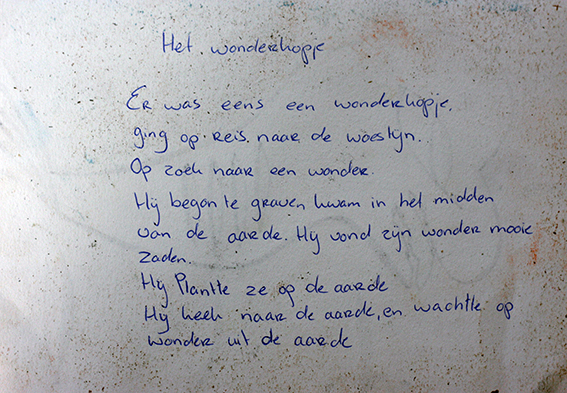 Het wonderhopje
Er was eens een wonderhopje.
ging op reis. naar de woestyn.
Op zoek naar een wonder.
Hij begon te graven kwam in het midden
van de aarde. Hij vond zijn wonder mooie
zaden.
Hij Plantte ze op de aarde
Hij keek naar de aarde, en wachtte op
wonder uit de aarde